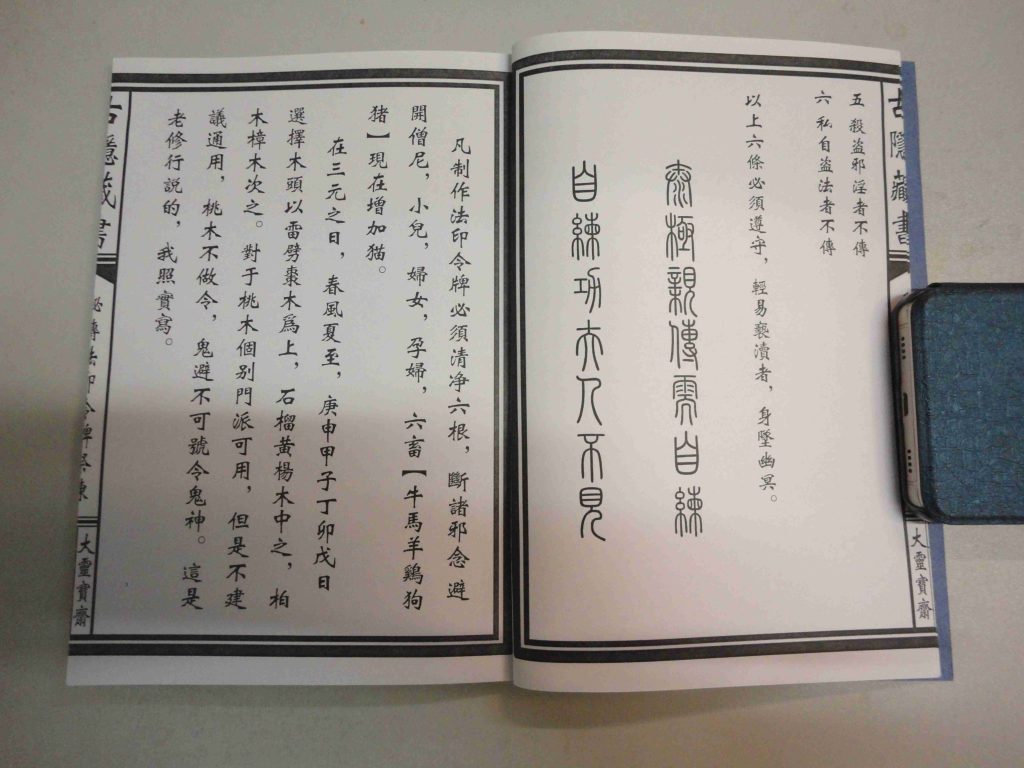 古隱藏書
大靈寶齋
五 殺盜邪淫者不傳
六 私自盜法者不傳
以上六條必須遵守，輕易褻瀆者，身墜幽冥。
極親傳需自練
自練功夫人不見
凡制作法印令牌必須清净六根，斷諸邪念避
開僧尼，小兒，婦女，孕婦，六畜【牛馬羊鷄狗
猪】現在增加猫。
在三元之日，春風夏至，庚申甲子丁卯戊日
選擇木頭以雷劈棗木爲上，石榴黄楊木中之，柏
木樟木次之。對于桃木個别門派可用，但是不建
議通用，桃木不做令，鬼避不可號令鬼神。這是
老修行説的，我照實寫。
古隱藏書
秘傳法印令牌祭煉
大靈寶齋